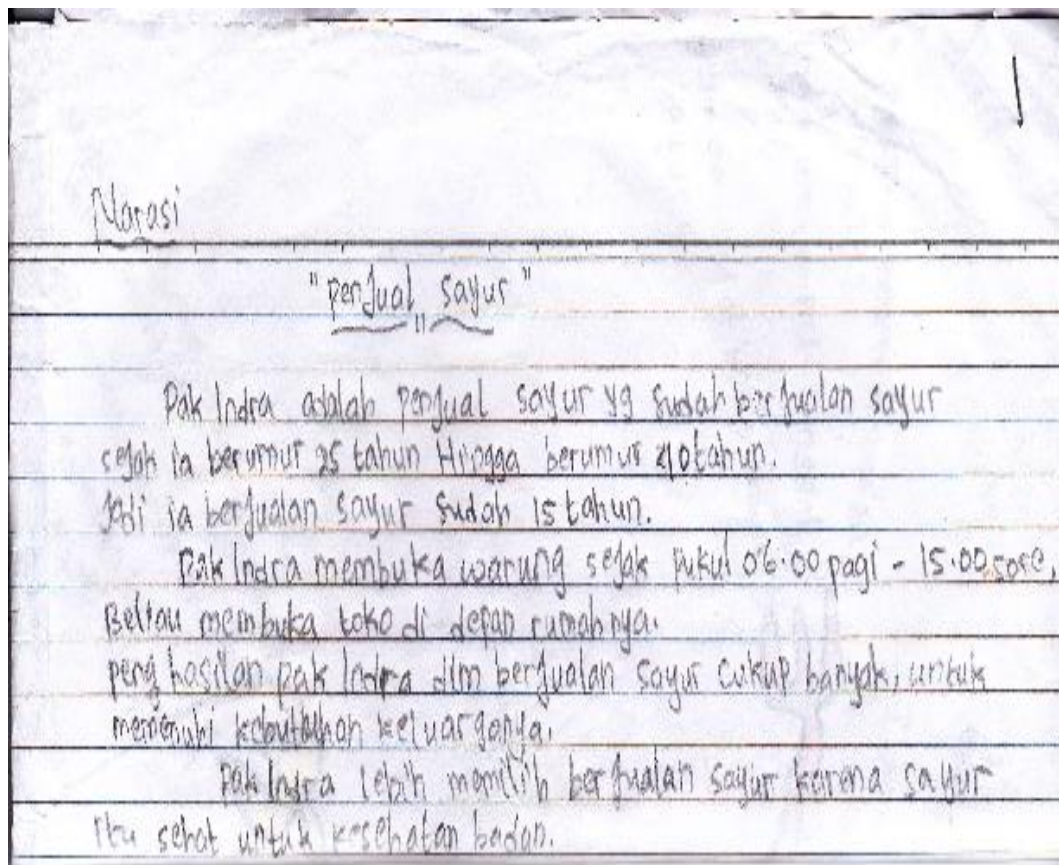 Narasi
"penjual sayur"
Pak Indra adalah penjual sayur yg sudah berjualan sayur
sejak ia berumur 25 tahun Hingga berumur 40 tahun.
Jadi ia berjualan sayur sudah 15 tahun.
Pak Indra membuka warung sejak pukul 06.00 pagi - 15.00 sore,
Beliau membuka toko di depan rumahnya.
penghasilan pak Indra dlm berjualan sayur cukup banyak, untuk
memenuhi kebutuhan keluarganya.
Pak Indra lebih memilih berjualan sayur karena sayur
itu sehat untuk kesehatan badan.